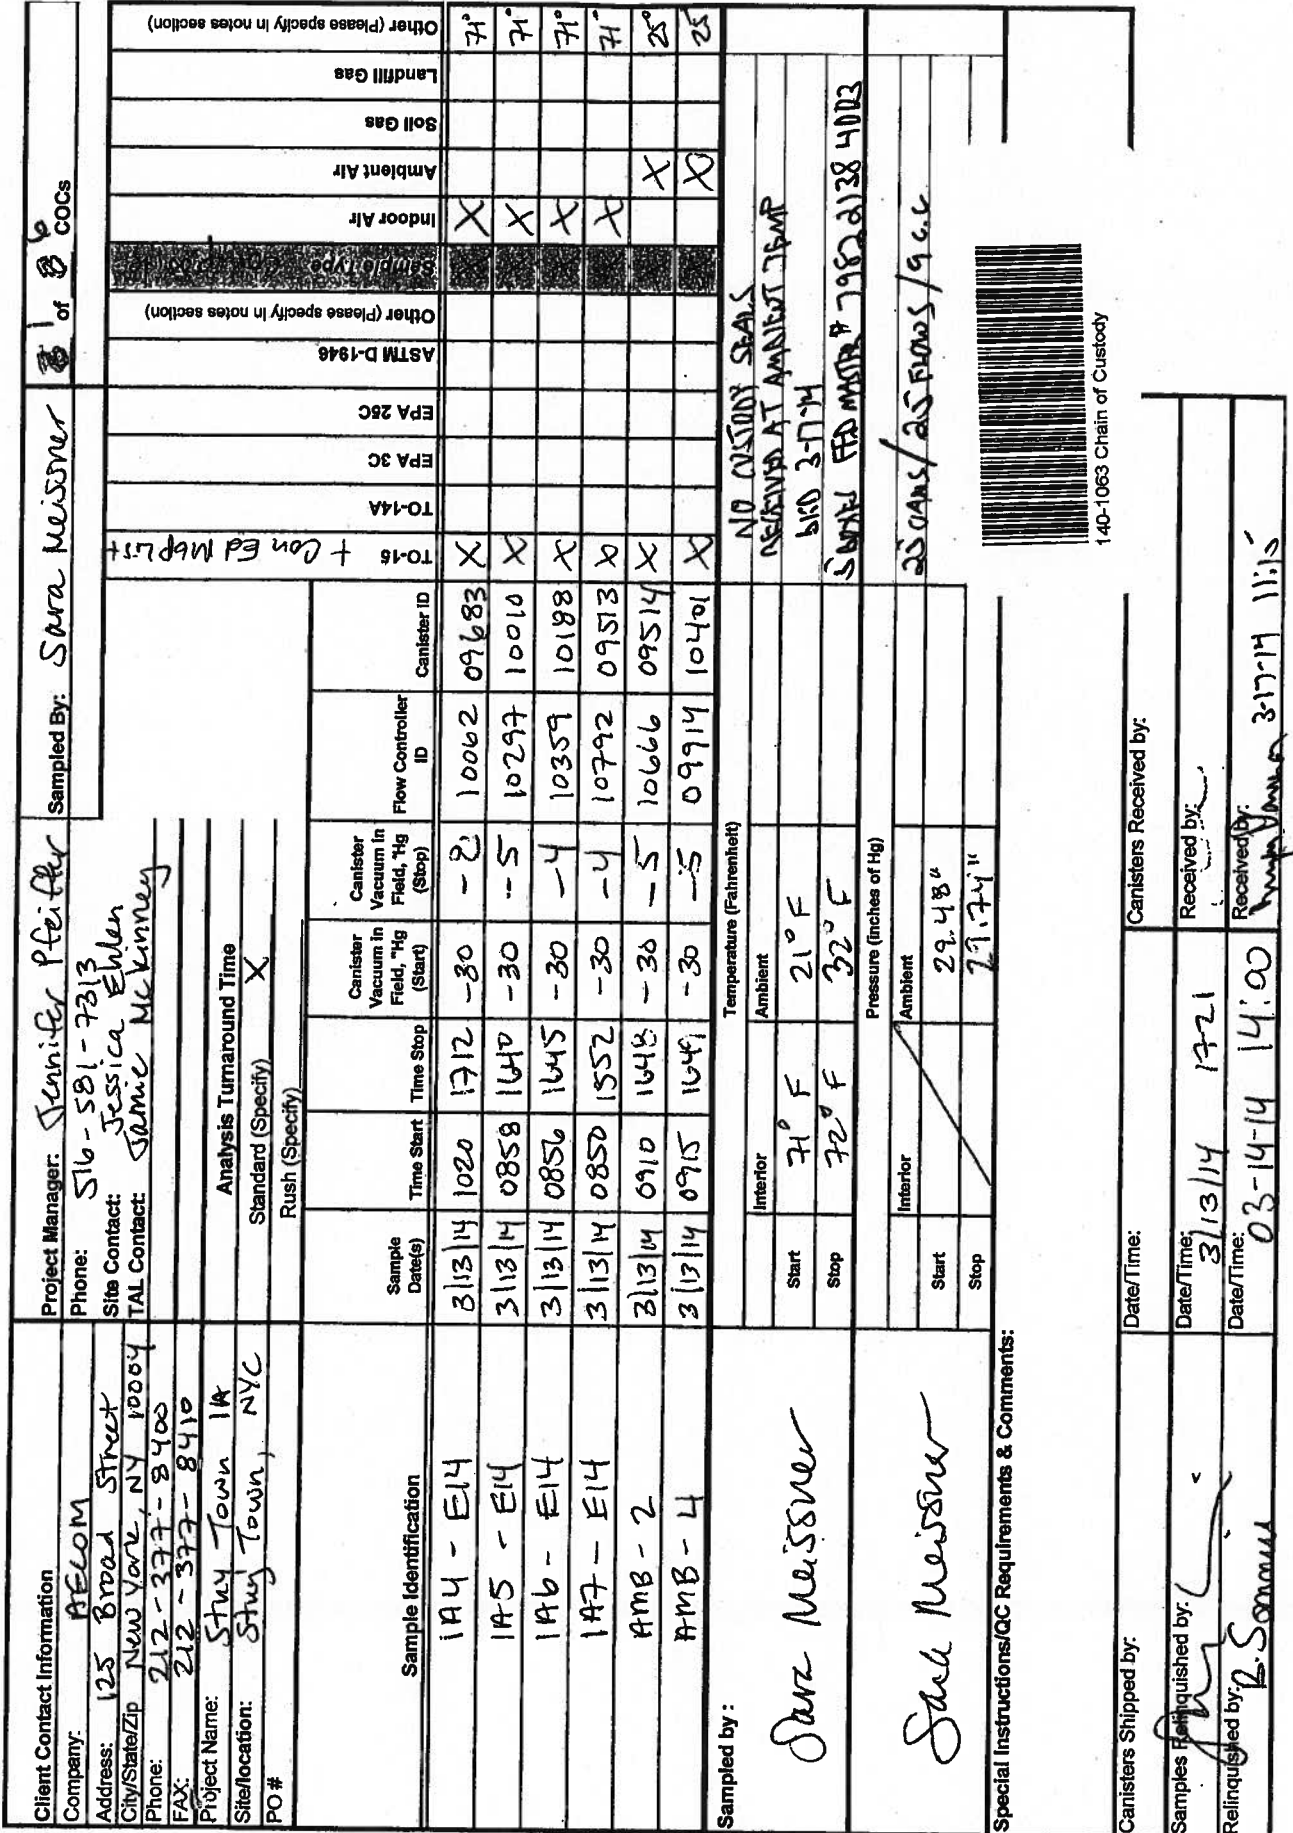 Client Contact Information
Company: AECOM
Address: 125 Broad Street
City/State/Zip New York, NY 10004
Phone: 212-377-8400
FAX: 212-377-8410
Project Name: Stuy Town IA
Site/location: Stuy Town, NYC
PO #
Project Manager: Jennifer Pfeiffer
Phone: 516-581-7313
Site Contact: Jessica Ehlen
TAL Contact: Jamie McKinney
Analysis Turnaround Time
Standard (Specify) X
Rush (Specify)
Sampled By: Sara Meissner
1 of 6 COCs
Sample Identification
Sample Date(s)
Time Start
Time Stop
Canister Vacuum in Field, "Hg (Start)
Canister Vacuum in Field, "Hg (Stop)
Flow Controller ID
Canister ID
TO-15 + Con Ed MGP List
TO-14A
EPA 3C
EPA 25C
ASTM D-1946
Other (Please specify in notes section)
Sample Type
Indoor Air
Ambient Air
Soil Gas
Landfill Gas
Other (Please specify in notes section)
IA4 - E14 3/13/14 1020 1712 -30 -2 10062 09683 X X 71°
IA5 - E14 3/13/14 0858 1640 -30 -5 10297 10010 X X 71°
IA6 - E14 3/13/14 0856 1645 -30 -4 10359 10188 X X 71°
IA7 - E14 3/13/14 0850 1552 -30 -4 10792 09513 X X 71°
AMB - 2 3/13/14 0910 1648 -30 -5 10666 09514 X X 25°
AMB - 4 3/13/14 0915 1649 -30 -5 09914 10401 X X 25
Sampled by :
Sara Meissner
Temperature (Fahrenheit)
Interior Ambient
Start 71° F 21° F
Stop 72° F 32° F
NO CUSTODY SEALS
RECEIVED AT AMBIENT TEMP
3-17-14
5 BOXES FED MSTR# 7982 2138 4003
Sara Meissner
Pressure (inches of Hg)
Interior Ambient
Start 29.48"
Stop 29.74"
25 CANS / 25 FLOWS / 9 G.C
Special Instructions/QC Requirements & Comments:
140-1063 Chain of Custody
Canisters Shipped by: Date/Time: Canisters Received by:
Samples Relinquished by: Date/Time: 3/13/14 1721 Received by:
Relinquished by: Date/Time: 03-14-14 14:00 Received by: 3-17-14 11:15